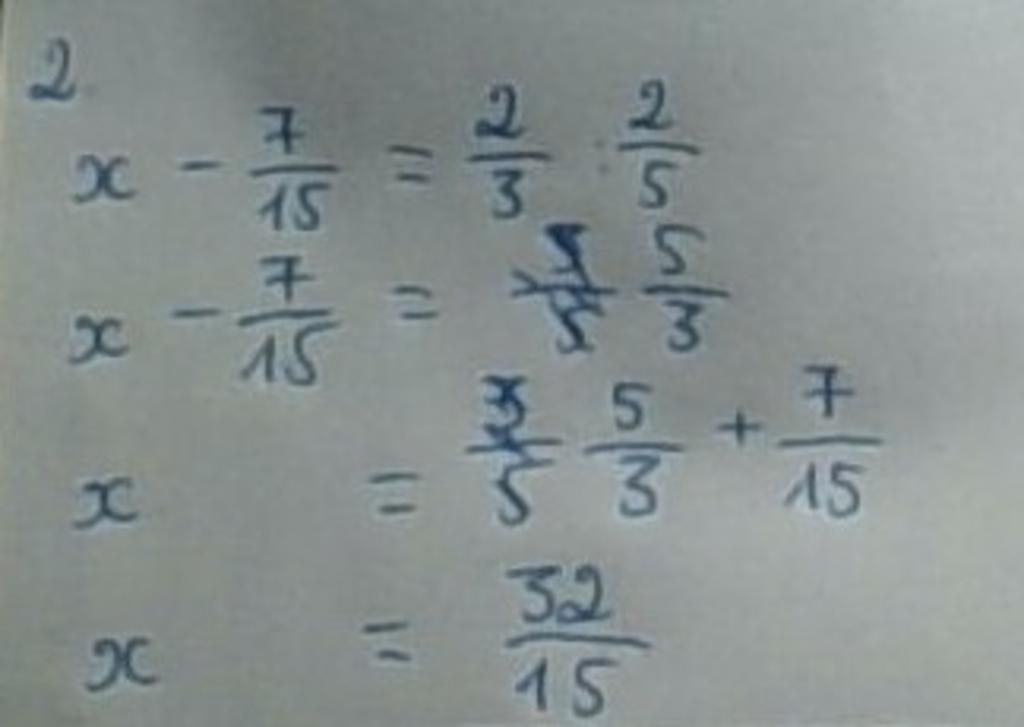 2
x - 7/15 = 2/3 : 2/5
x - 7/15 = 5/3
x = 5/3 + 7/15
x = 32/15